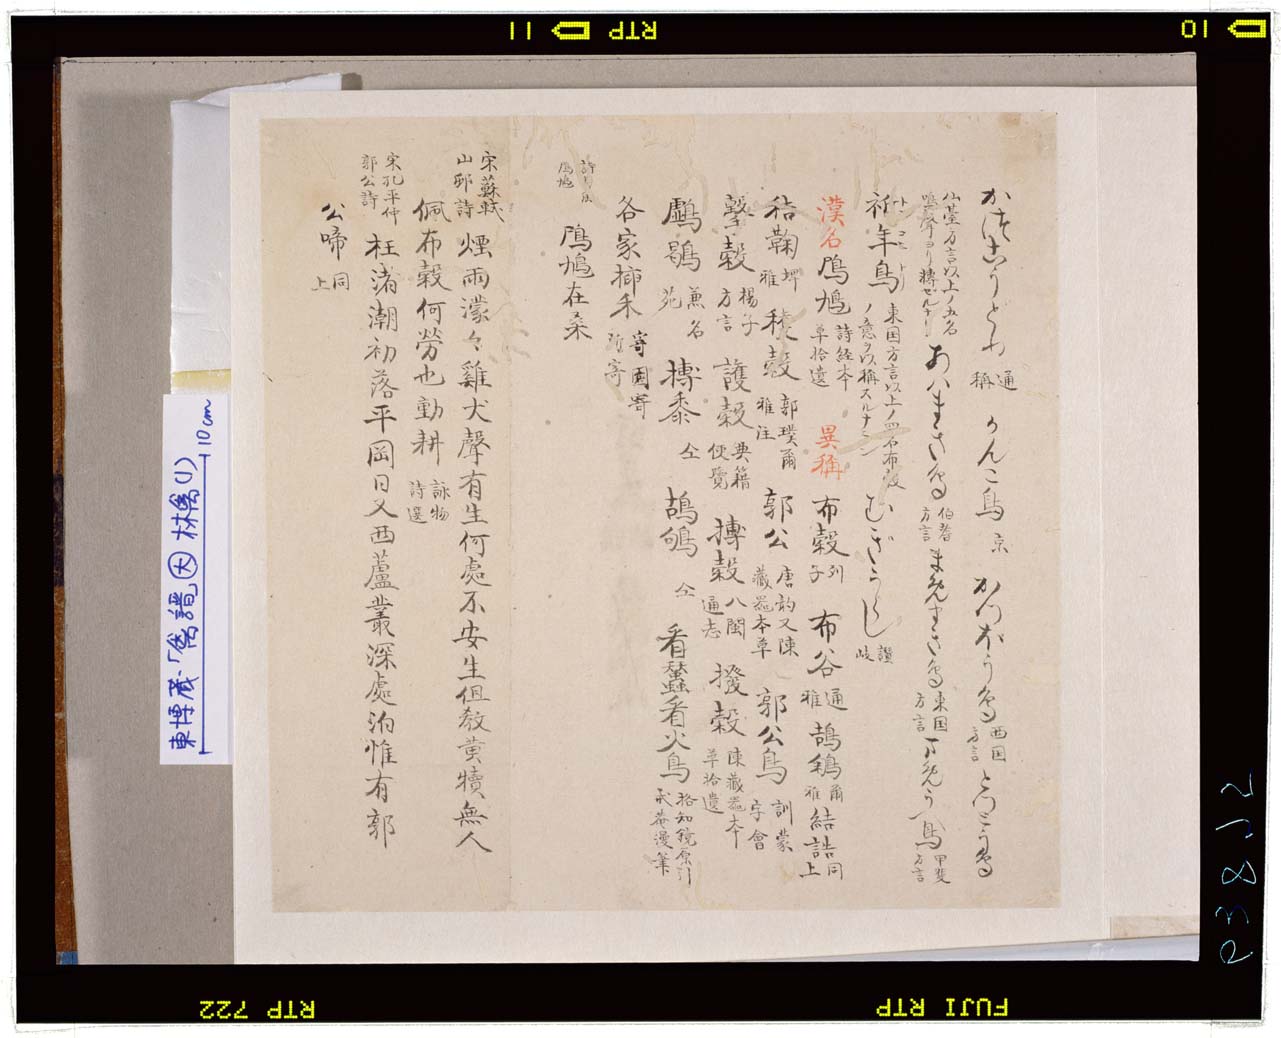 かつこうどり 通稱 かんこ鳥 京 かつぽう鳥 西国方言 とつとう鳥
仙臺方言以上ノ五名鳴聲ヨリ轉ゼルナリ あハまき鳥 伯耆方言 まめまき鳥 東国方言 まめう鳥 甲斐方言
祈年鳥 東国方言以上ノ四名布穀ノ意ヲ以稱スルナラン むぎうらし 讃岐
漢名 鳲鳩 詩經本草拾遺 異稱 布穀 列子 布谷 通雅 鴶鵴 爾雅 結誥 同上
秸鞠 埤雅 穫穀 郭璞爾雅注 郭公 唐韵又陳藏器本草 郭公鳥 訓蒙字會
擊穀 楊子方言 護穀 典籍便覽 摶穀 八閩通志 撥穀 陳藏器本草拾遺
鸤鵴 兼名苑 摶黍 仝 鴶鴝 仝 看蠶看火鳥 格知鏡原引戒菴漫筆
各家揷禾
詩 鳲鳩 鳲鳩在桑
宋蘓軾山邨詩 煙雨濛々雞犬聲有生何處不安生但敎黃犢無人
佩布穀何勞也勸耕 詠物詩選
宋孔平仲郭公詩 枉渚潮初落平岡日又西蘆叢深處泊惟有郭
公啼 同上
東博蔵・「禽譜」㊅ 林禽(1)
10cm
RTP 11
10
RTP 722
FUJI RTP